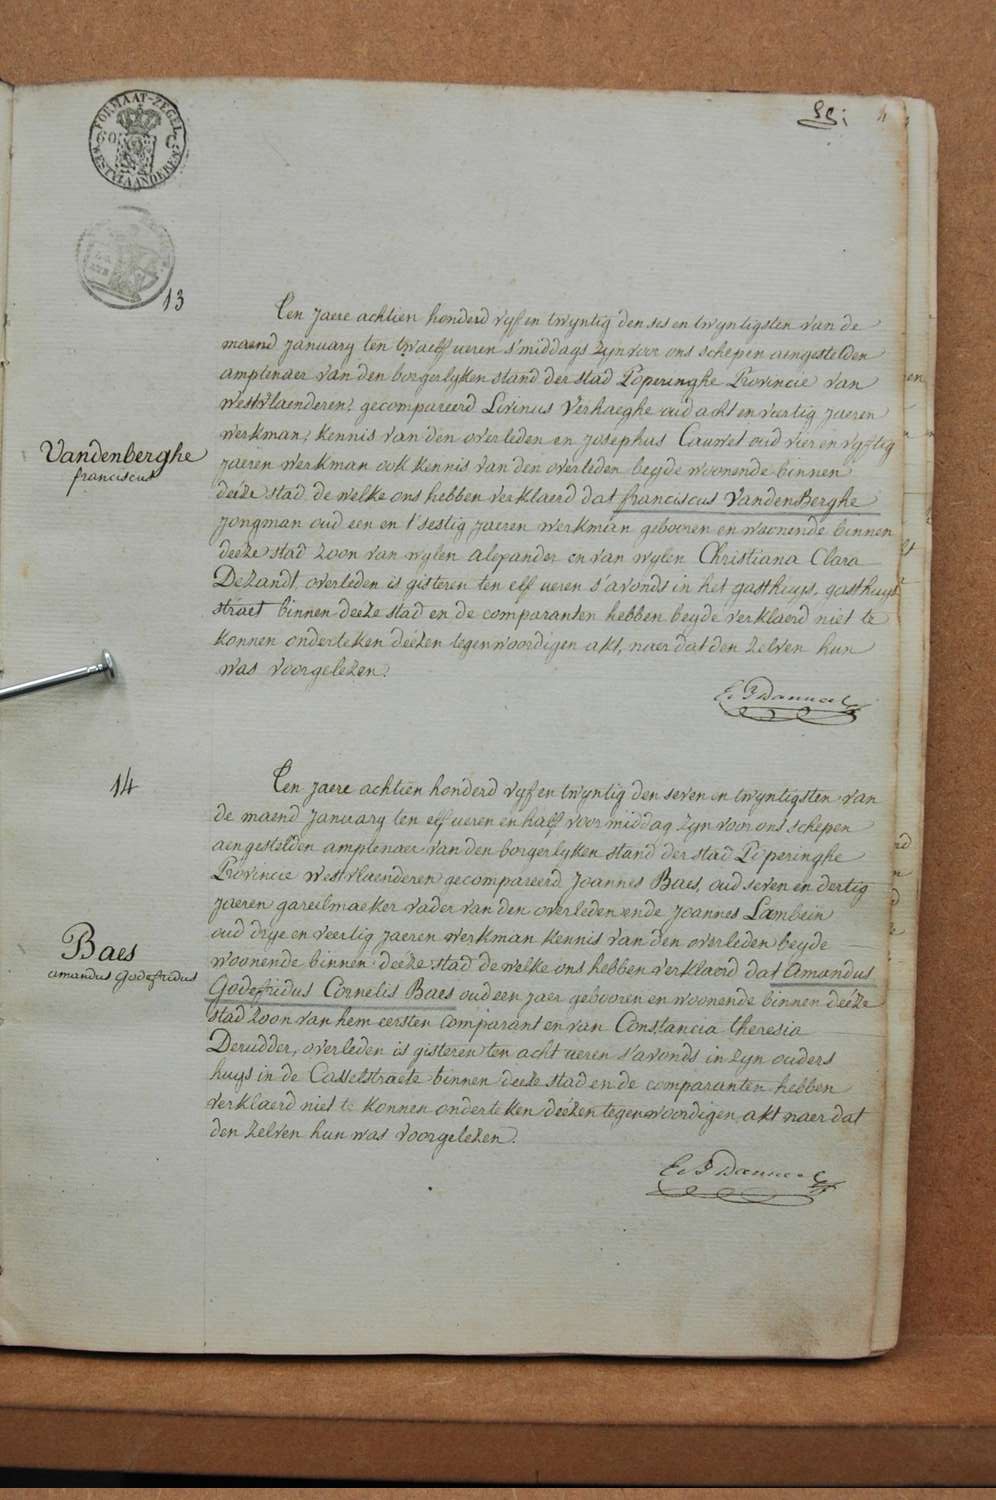 FORMAAT-ZEGEL
60 C
WESTVLAANDEREN
13
Vandenberghe
franciscus
Ten Jaere achtien honderd vyf en twyntig den ses en twyntigsten van de
maend January ten twaelf ueren s'middags zyn voor ons schepen aengestelden
amptenaer van den borgerlyken stand der stad Poperinghe Provincie van
westvlaenderen, gecompareerd Livinus Verhaeghe oud acht en veertig Jaeren
werkman, kennis van den overleden en Josephus Cauwet oud vier en vyftig
jaeren werkman ook kennis van den overleden beyde woonende binnen
deeze stad de welke ons hebben verklaerd dat franciscus VandenBerghe
Jongman oud een en t'sestig jaeren werkman gebooren en woonende binnen
deeze stad zoon van wylen alexander en van wylen Christiana Clara
Dezandt overleden is gisteren ten elf ueren s'avonds in het gasthuys, gasthuys
straet binnen deeze stad en de comparanten hebben beyde verklaerd niet te
konnen onderteken deezen tegenwoordigen akt, naer dat den zelven hun
was voorgelezen.
14
Baes
amandus Godefridus
Ten Jaere achtien honderd vyf en twyntig den seven en twyntigsten van
de maend January ten elf ueren en half voormiddag zyn voor ons schepen
aengestelden amptenaer van den borgerlyken stand der stad Poperinghe
Provincie westvlaenderen gecompareerd Joannes Baes, oud seven en dertig
jaeren gareelmaeker vader van den overleden ende Joannes Lambein
oud drye en veertig jaeren werkman kennis van den overleden beyde
woonende binnen deeze stad de welke ons hebben verklaerd dat Amandus
Godefridus Cornelis Baes oud een jaer gebooren en woonende binnen deeze
stad zoon van hem eersten comparant en van Constancia theresia
Derudder, overleden is gisteren ten acht ueren s'avonds in zyn ouders
huys in de Casselstraete binnen deeze stad en de comparanten hebben
verklaerd niet te konnen onderteken deezen tegenwoordigen akt naer dat
den zelven hun was voorgelezen.